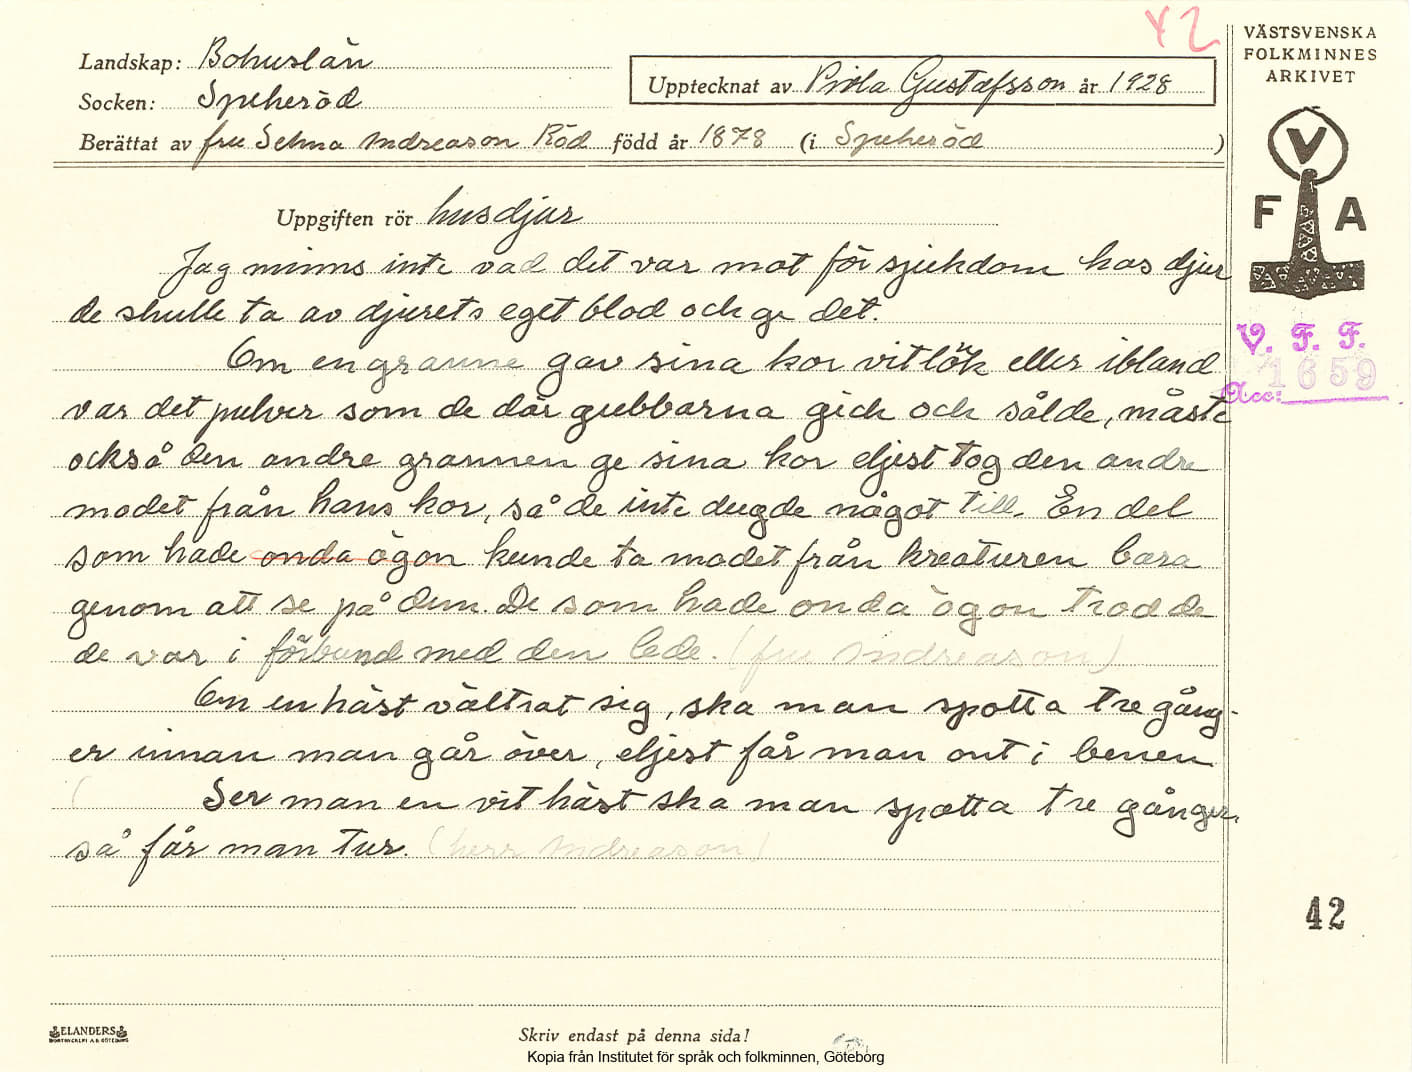 42
VÄSTSVENSKA
FOLKMINNES
ARKIVET
Landskap: Bohuslän
Socken: Spekeröd
Upptecknat av Viola Gustafsson år 1928
Berättat av fru Selma Andreason Röd född år 1878 (i Spekeröd )
V
F A
Uppgiften rör husdjur
Jag minns inte vad det var mot för sjukdom hos djur
de skulle ta av djurets eget blod och ge det.
Om en granne gav sina kor vitlök eller ibland
var det pulver som de där gubbarna gick och sålde, måste
också den andre grannen ge sina kor eljest tog den andre
modet från hans kor, så de inte dugde något till. En del
som hade onda ögon kunde ta modet från kreaturen bara
genom att se på dem. De som hade onda ögon trodde
de var i förbund med den lede. (fru Andreason)
Om en häst vältrat sig, ska man spotta tre gång-
er innan man går över, eljest får man ont i benen
Ser man en vit häst ska man spotta tre gånger,
så får man tur. (herr Andreason)
V. F. F.
1659
Acc:
42
ELANDERS
Skriv endast på denna sida!
Kopia från Institutet för språk och folkminnen, Göteborg